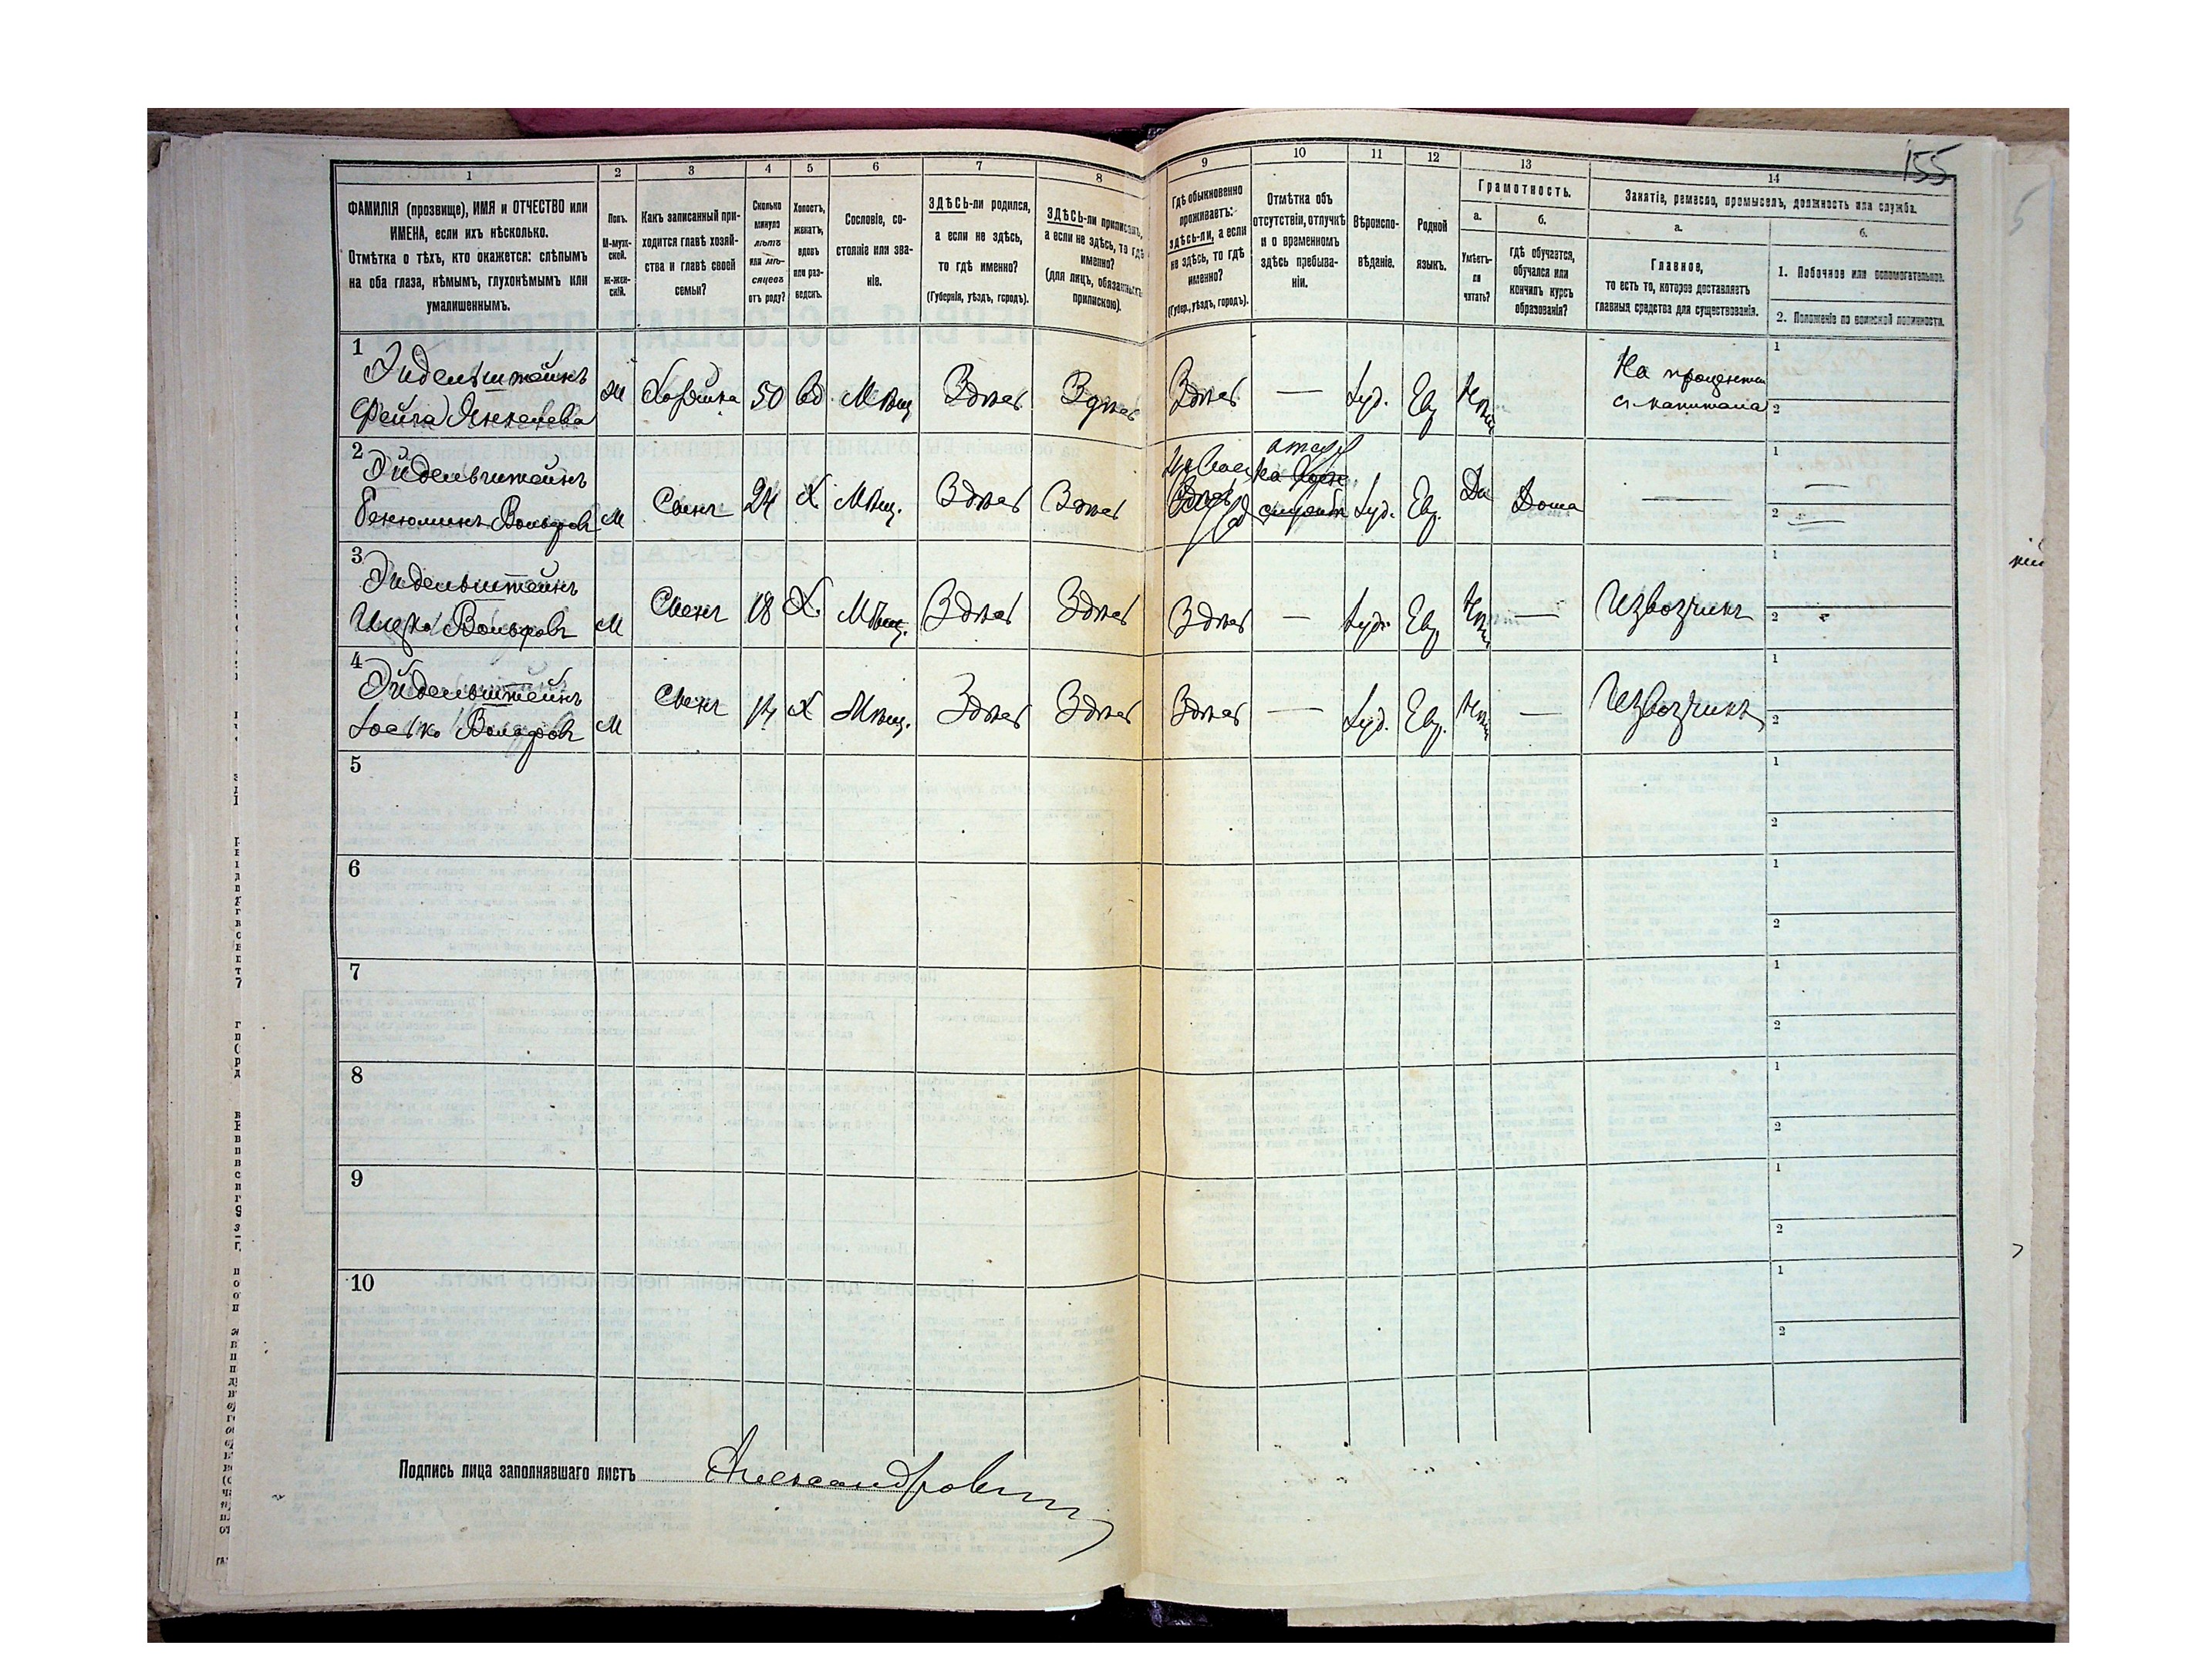 155
1
2
3
4
5
6
7
8
9
10
11
12
13
14
ФАМИЛІЯ (прозвище), ИМЯ и ОТЧЕСТВО или
ИМЕНА, если ихъ нѣсколько.
Отмѣтка о тѣхъ, кто окажется: слѣпымъ
на оба глаза, нѣмымъ, глухонѣмымъ или
умалишеннымъ.
Полъ.
М-муж-
ской.
ж-жен-
скій.
Какъ записанный при-
ходится главѣ хозяй-
ства и главѣ своей
семьи?
Сколько
минуло
лѣтъ
или мѣ-
сяцевъ
отъ роду?
Холостъ,
женатъ,
вдовъ
или раз-
веденъ.
Сословіе, со-
стояніе или зва-
ніе.
ЗДѢСЬ-ли родился,
а если не здѣсь,
то гдѣ именно?
(Губернія, уѣздъ, городъ).
ЗДѢСЬ-ли приписанъ,
а если не здѣсь, то гдѣ
именно?
(для лицъ, обязанныхъ
припискою).
Гдѣ обыкновенно
проживаетъ:
здѣсь-ли, а если
не здѣсь, то гдѣ
именно?
(Губер., уѣздъ, городъ).
Отмѣтка объ
отсутствіи, отлучкѣ
и о временномъ
здѣсь пребыва-
ніи.
Вѣроиспо-
вѣданіе.
Родной
языкъ.
Грамотность.
а.
Умѣетъ-
ли
читать?
б.
гдѣ обучается,
обучался или
кончилъ курсъ
образованія?
Занятіе, ремесло, промыселъ, должность или служба.
а.
Главное,
то есть то, которое доставляетъ
главныя средства для существованія.
б.
1. Побочное или вспомогательное.
2. Положеніе по воинской повинности.
1
Эидельштейнъ
Фейга Янкелева
Ж Хозяйка 50 вд. Мѣщ Здѣсь Здѣсь Здѣсь — Іуд. Евр Нѣтъ
На проценты
съ капитала
1
2
2
Эйдельштейнъ
Бенюминъ Вольфовъ
М Сынъ 24 Х Мѣщ. Здѣсь Здѣсь Здѣсь Іуд. Евр. Да Дома —
1 —
2 —
3
Эидельштейнъ
Ицко Вольфовъ
М Сынъ 18 Х. Мѣщ. Здѣсь Здѣсь Здѣсь — Іуд. Евр. Нѣтъ — Извозчикъ
1
2
4
Эйдельштейнъ
Іосько Вольфовъ
М Сынъ 14 Х Мѣщ. Здѣсь Здѣсь Здѣсь — Іуд. Евр. Нѣтъ — Извозчикъ
1
2
5
1
2
6
1
2
7
1
2
8
1
2
9
1
2
10
1
2
Подпись лица заполнявшаго листъ